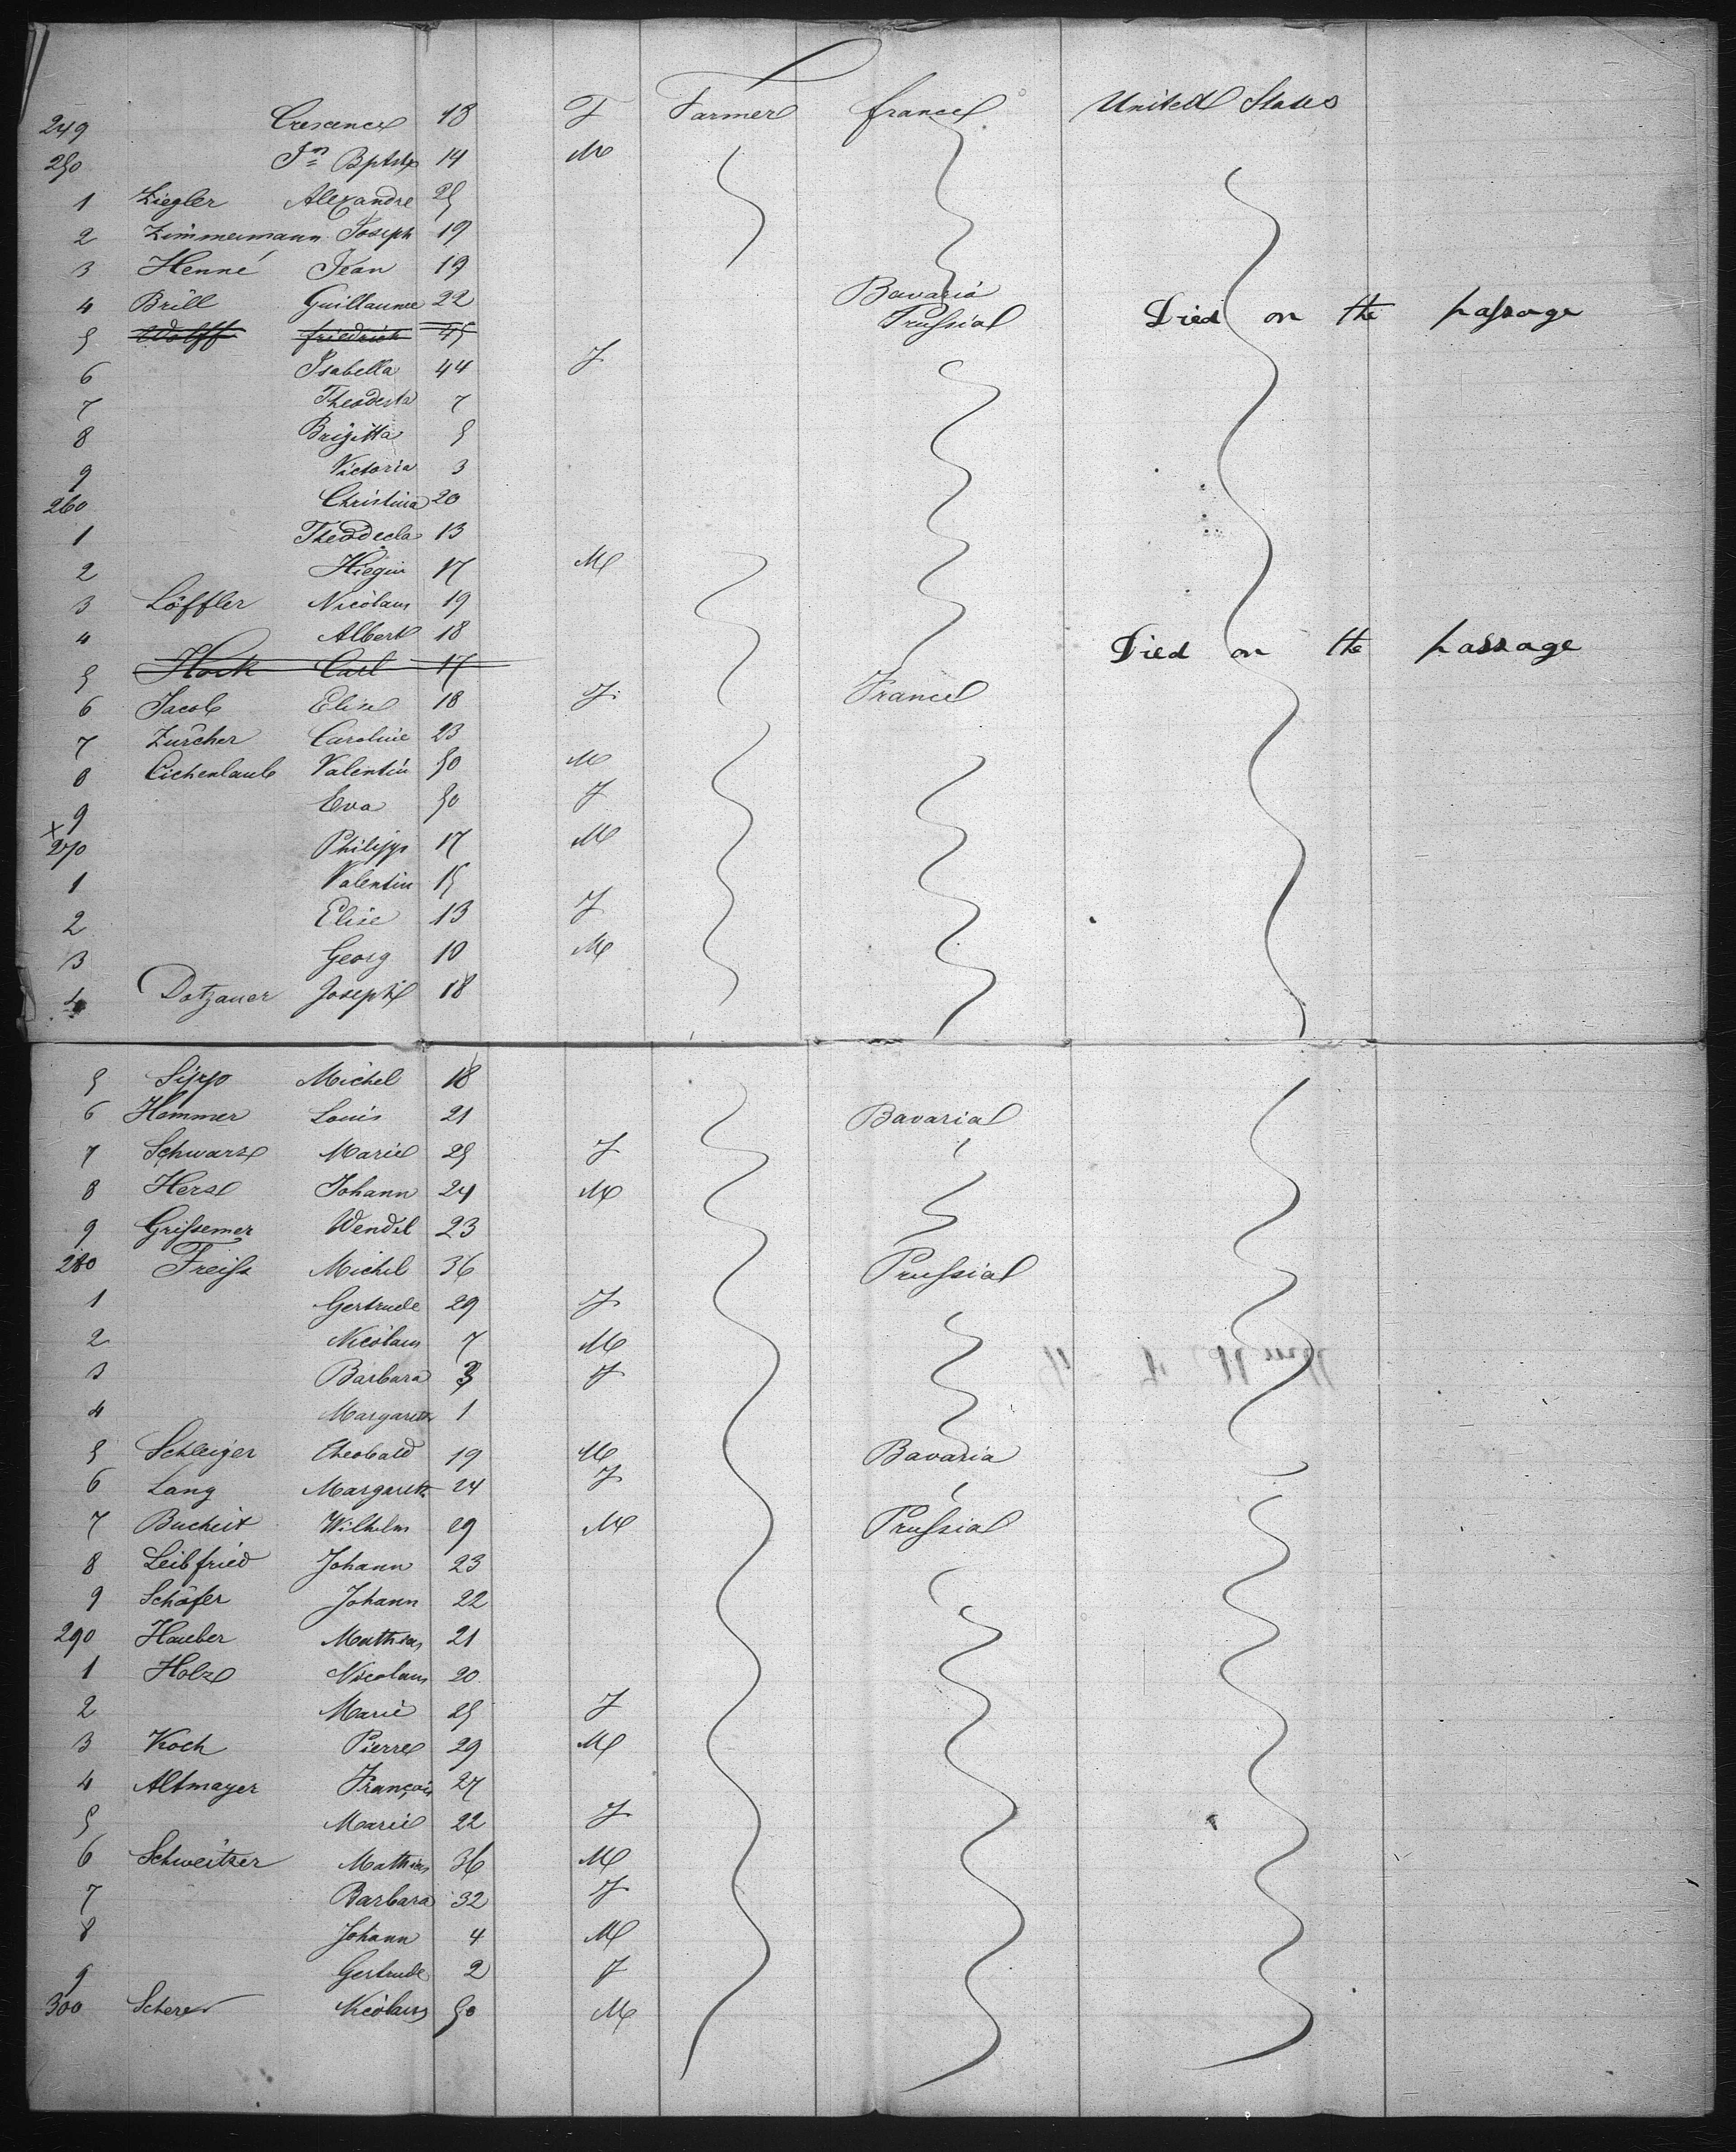 249 Crescence 18 F Farmer France United States
250 Jn Bptste 14 M
1 Ziegler Alexandre 25
2 Zimmermann Joseph 19
3 Henné Jean 19
4 Brill Guillaume 22 Bavaria
5 Wolff friedrich 45 Prussia Died on the passage
6 Isabella 44 F
7 7
8 Brigitta 5
9 Victoria 3
260 Christina 20
1 Theodecla 13
2 Hiegin 17 M
3 Löffler Nicolaus 19
4 Albert 18
5 Hock Carl 17 Died on the passage
6 Jacob Elise 18 F France
7 Zurcher Caroline 23
8 Eichenlaub Valentin 50 M
9 Eva 50 F
x 270 Philipp 17 M
1 Valentin 15
2 Elise 13 F
3 Georg 10 M
4 Dotzauer Joseph 18
5 Sipp Michel 18
6 Hammer Louis 21 Bavaria
7 Schwarz Marie 25 F
8 Herse Johann 24 M
9 Grissemer Wendel 23
280 Freiss Michel 36 Prussia
1 Gertrude 29 F
2 Nicolaus 7 M
3 Barbara 3 F
4 Margareth 1
5 Schleiger Theobald 19 M Bavaria
6 Lang Margareth 24 F
7 Bucheit Wilhelm 29 M Prussia
8 Leibfried Johann 23
9 Schäfer Johann 22
290 Hauber Mathias 21
1 Holz Nicolaus 20
2 Marie 25 F
3 Koch Pierre 29 M
4 Altmayer François 27
5 Marie 22 F
6 Schweitzer Mathias 36 M
7 Barbara 32 F
8 Johann 4 M
9 Gertrude 2 F
300 Scherer Nicolaus 50 M